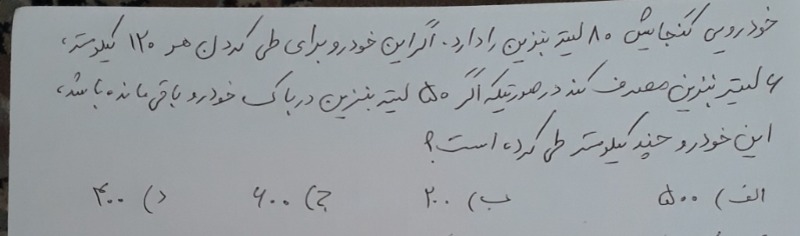 خودرویی گنجایش ۸۰ لیتر بنزین را دارد. اگر این خودرو برای طی کردن هر ۱۲۰ کیلومتر،
۶ لیتر بنزین مصرف کند در صورتیکه اگر ۵۰ لیتر بنزین در باک خودرو باقی مانده باشد،
این خودرو چند کیلومتر طی کرده است؟
الف) ۵۰۰ ب) ۲۰۰ ج) ۶۰۰ د) ۴۰۰